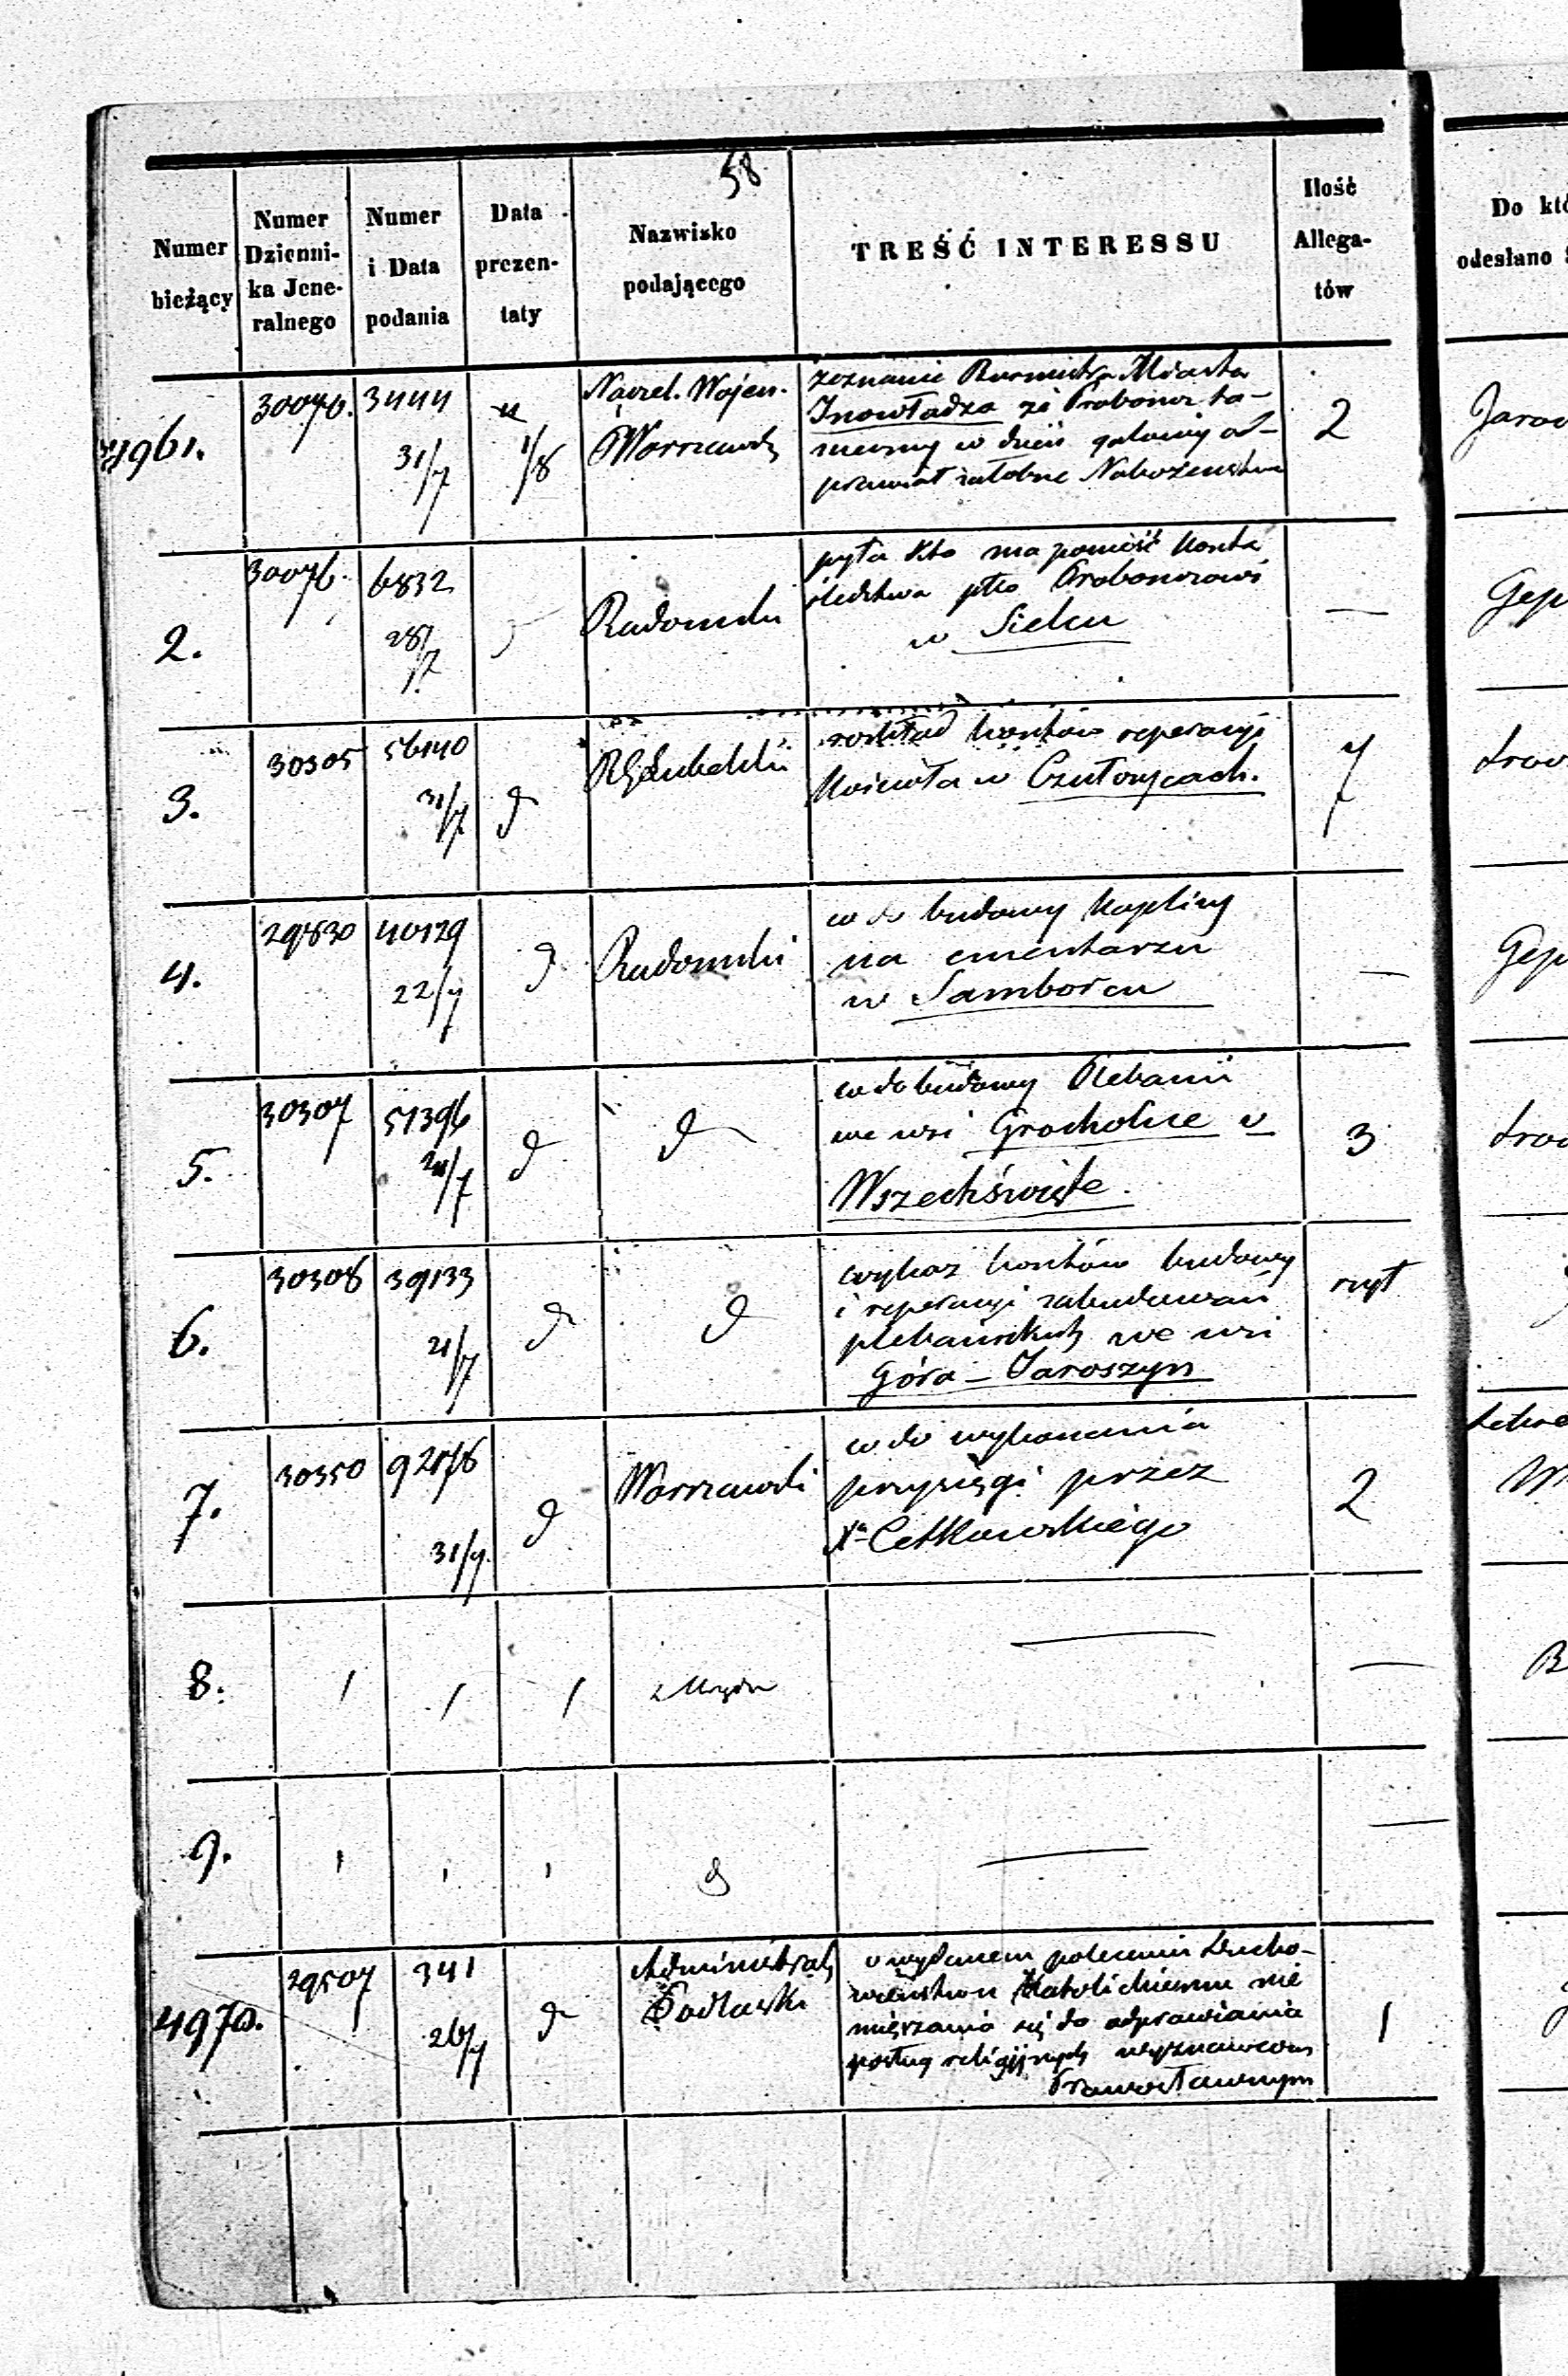 58
Numer
bieżący
Numer
Dzienni-
ka Jene-
ralnego
Numer
i Data
podania
Data
prezen-
taty
Nazwisko
podającego
TREŚĆ INTERESSU
Ilość
Allega-
tów
Do któ
odesłano
4961.
3444
31/7
1/8
Naczel. Wojen.
zeznanie Burmistrza Miasta
Inowłodza że Proboszcz ta-
w dzień galowy od-
prawiał żałobne Nabożeństwo
2
2.
6832
28/7
Radomski
pyta kto ma ponieść koszta
śledztwa płko Proboszczowi
w Sielcu
—
Gep
3.
30305
56440
31/7
d
RG Lubelski
rozkład kosztów reperacyi
Kościoła w Czułczycach.
7
4.
29830
40129
22/7
d
Radomski
co do budowy Kaplicy
na cmentarzu
w Samborcu
—
Gep
5.
30307
51396
24/7
d
d
co do budowy Plebanii
we wsi Grocholice v
Wszechświęte.
3
6.
30308
39133
21/7
d
d
wykaz kosztów budowy
i reperacyi zabudowań
plebańskich we wsi
Góra – Jaroszyn
szyt
7.
30350
31/7
d
Warszawski
co do wykonania
przysięgi przez
Xa Cetkowskiego
2
8.
z Urzędu
—
—
9.
d
—
—
4970.
29507
341
26/7
d
Administrator
Podlaski
o wydanem poleceniu Ducho-
wieństwu Katolickiemu nie
mięszania się do odprawiania
posług religijnych wyznawcom
Prawosławnym
1